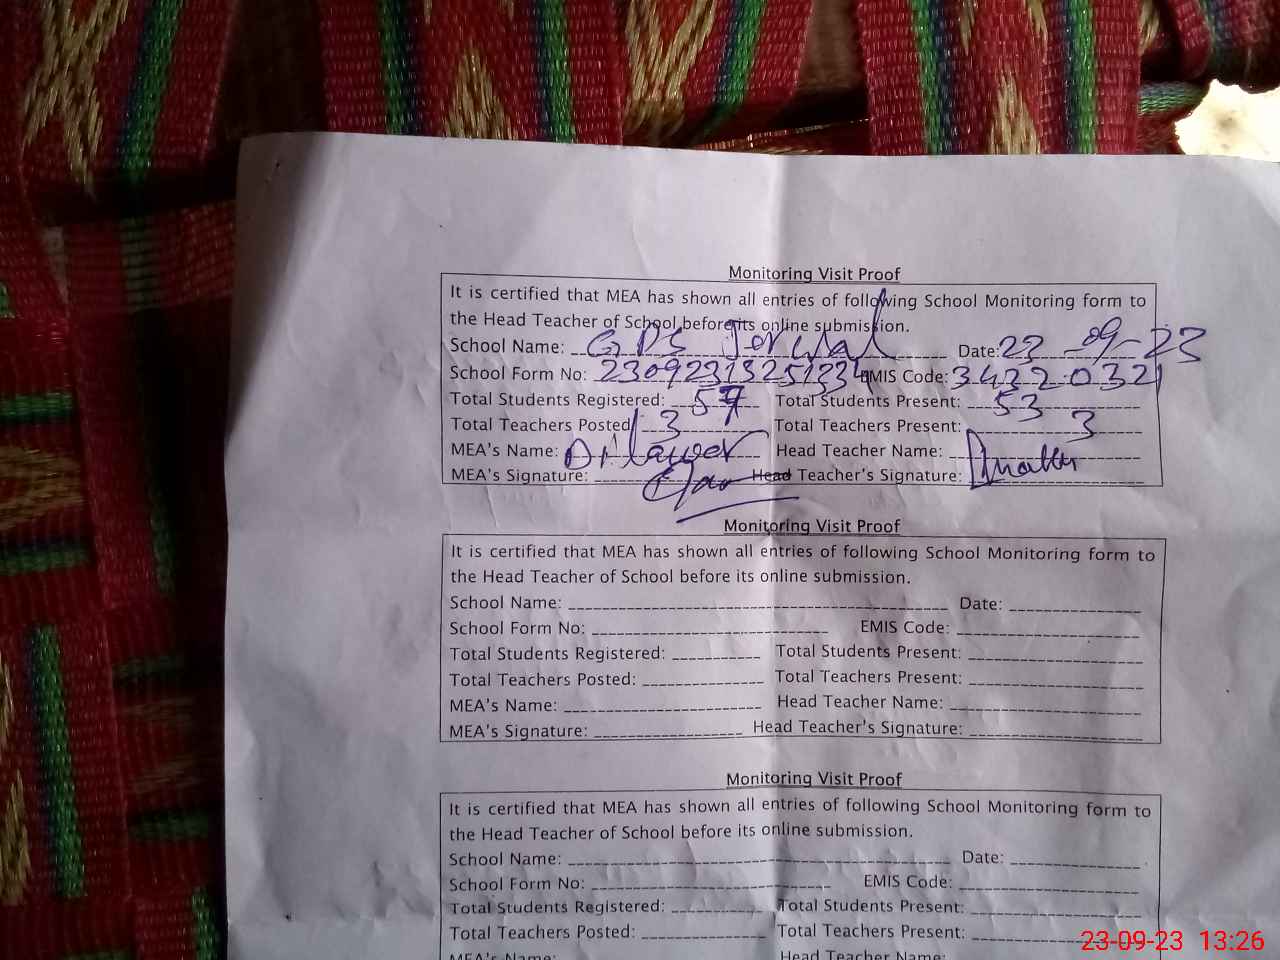 Monitoring Visit Proof
It is certified that MEA has shown all entries of following School Monitoring form to
the Head Teacher of School before its online submission.
School Name: GPS Date: 23-09-23
School Form No: EMIS Code: 34320321
Total Students Registered: 57 Total Students Present: 53
Total Teachers Posted 3 Total Teachers Present: 3
MEA's Name: Dilawer Head Teacher Name:
MEA's Signature: Head Teacher's Signature:
Monitoring Visit Proof
It is certified that MEA has shown all entries of following School Monitoring form to
the Head Teacher of School before its online submission.
School Name: Date:
School Form No: EMIS Code:
Total Students Registered: Total Students Present:
Total Teachers Posted: Total Teachers Present:
MEA's Name: Head Teacher Name:
MEA's Signature: Head Teacher's Signature:
Monitoring Visit Proof
It is certified that MEA has shown all entries of following School Monitoring form to
the Head Teacher of School before its online submission.
School Name: Date:
School Form No: EMIS Code:
Total Students Registered: Total Students Present:
Total Teachers Posted: Total Teachers Present:
MEA's Name: Head Teacher Name:
23-09-23 13:26